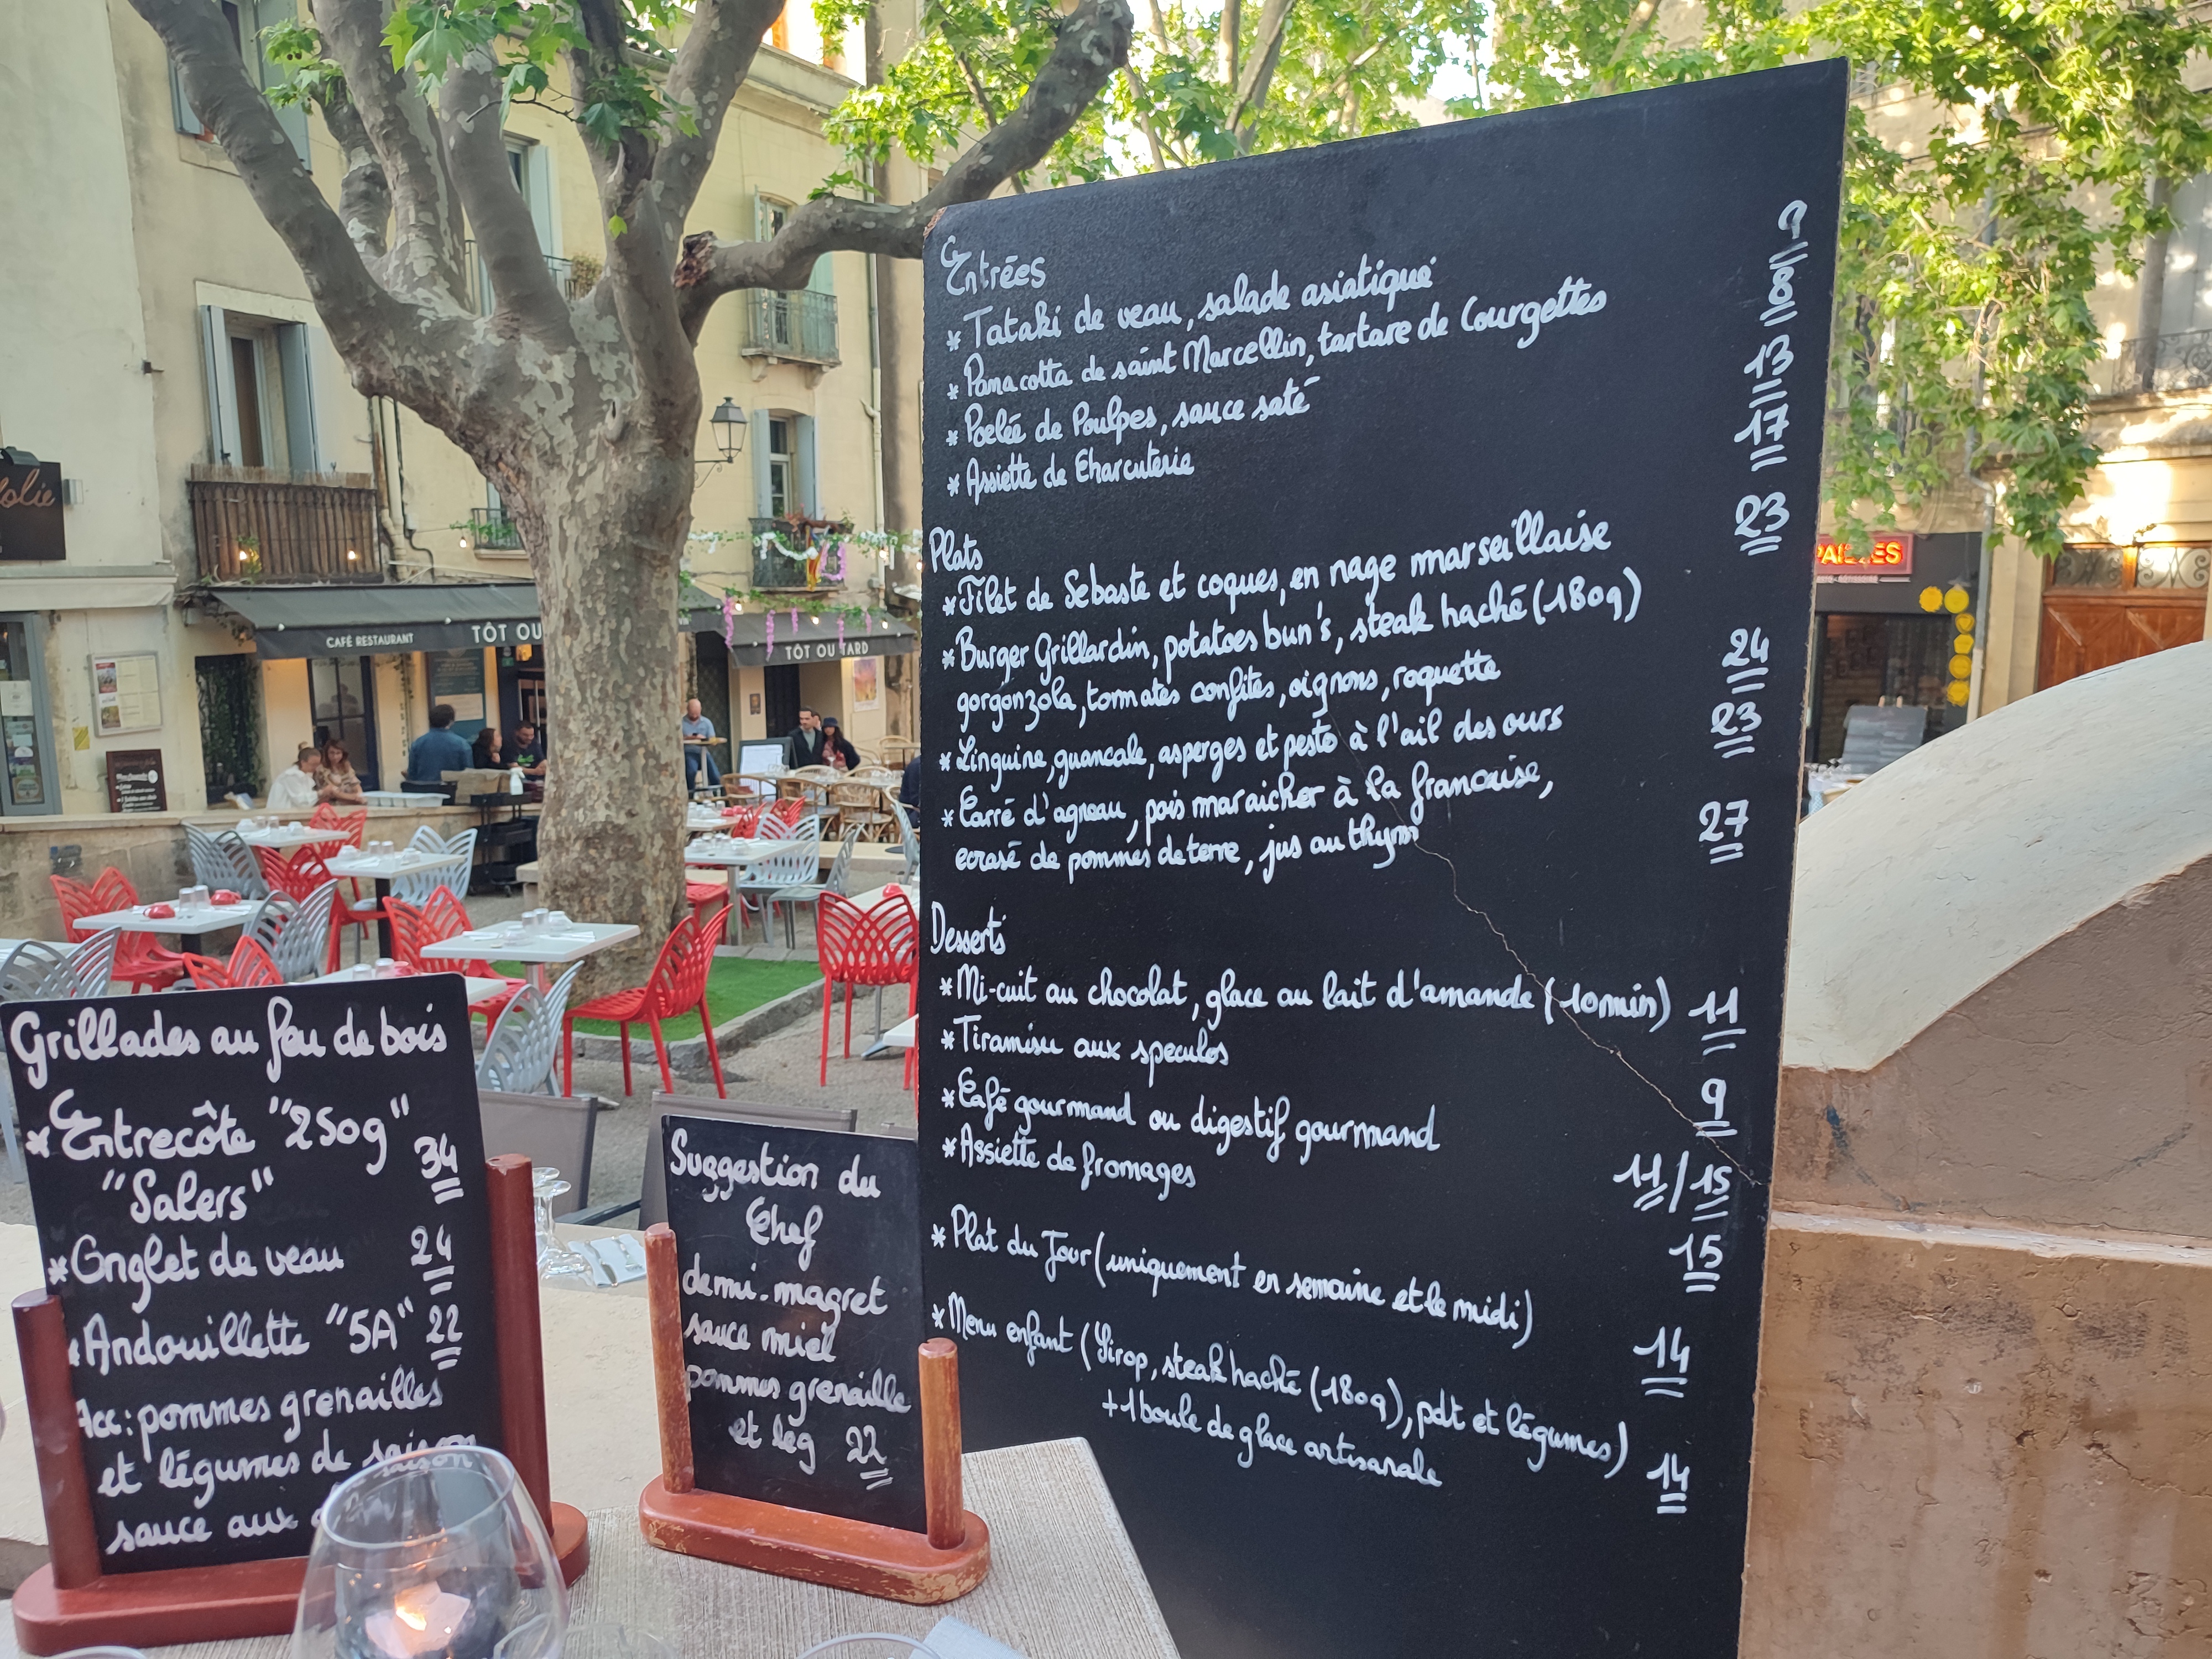 Entrées
* Tataki de veau, salade asiatique
* Panacotta de saint Marcellin, tartare de Courgettes
* Poelée de Poulpes, sauce saté 13
* Assiette de Charcuterie 17
23
Plats
* Filet de Sebaste et coques, en nage marseillaise
* Burger Grillardin, potatoes bun's, steak haché (180g)
gorgonzola, tomates confites, oignons, roquette 24
* Linguine, guancale, asperges et pesto à l'ail des ours 23
* Carré d'agneau, pois maraicher à la francaise,
ecrasé de pommes de terre, jus au thym 27
Desserts
* Mi-cuit au chocolat, glace au lait d'amande (10min) 11
* Tiramisu aux speculos 9
* Café gourmand ou digestif gourmand 11/15
* Assiette de fromages 15
* Plat du Jour (uniquement en semaine et le midi) 14
* Menu enfant (Sirop, steak haché (180g), pdt et légumes)
+1 boule de glace artisanale 14
Grillades au feu de bois
* Entrecôte "250g" 34
"Salers"
* Onglet de veau 24
* Andouillette "5A" 22
Acc: pommes grenailles
et légumes de saison
sauce aux
Suggestion du
Chef
demi-magret
sauce miel
pommes grenaille
et leg 22
CAFÉ RESTAURANT
TÔT OU
TÔT OU TARD
folie